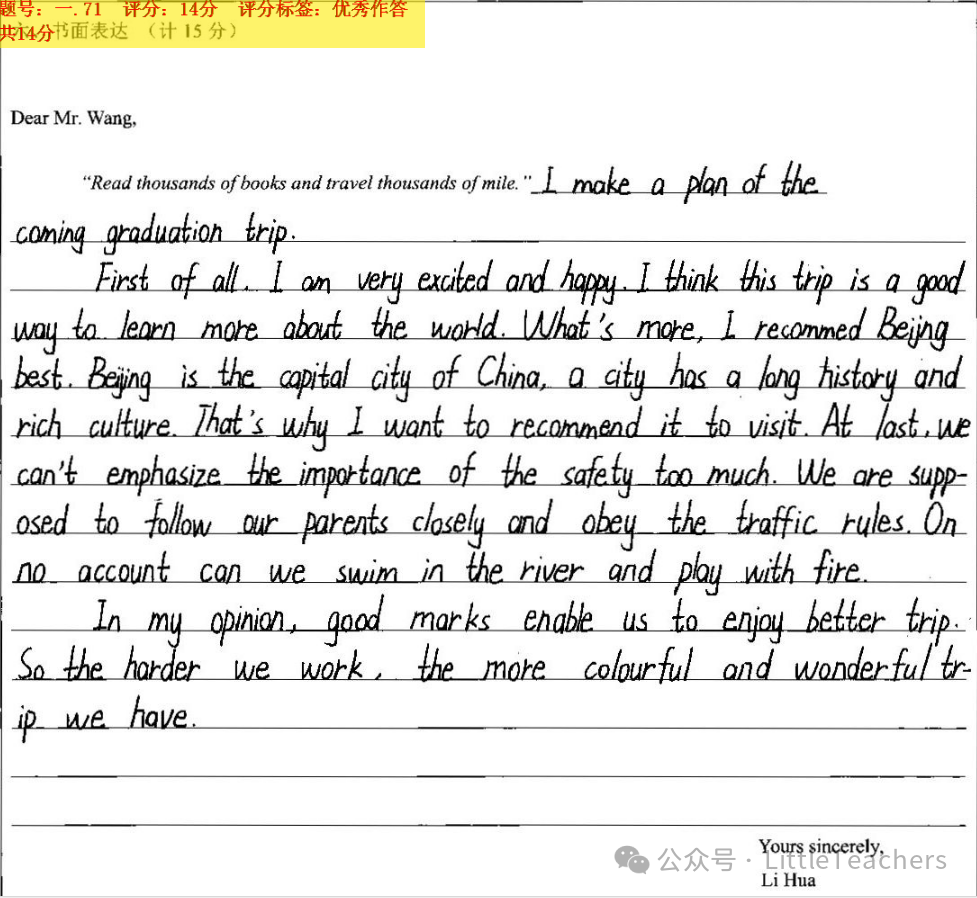 题号：一.71 评分：14分 评分标签：优秀作答
共14分
书面表达 （计 15 分）
Dear Mr. Wang,
"Read thousands of books and travel thousands of mile." I make a plan of the
coming graduation trip.
First of all, I am very excited and happy. I think this trip is a good
way to learn more about the world. What's more, I recommed Beijng
best. Beijing is the capital city of China, a city has a long history and
rich culture. That's why I want to recommend it to visit. At last, we
can't emphasize the importance of the safety too much. We are supp-
osed to follow our parents closely and obey the traffic rules. On
no account can we swim in the river and play with fire.
In my opinion, good marks enable us to enjoy better trip.
So the harder we work, the more colourful and wonderful tr-
ip we have.
Yours sincerely,
公众号 · LittleTeachers
Li Hua